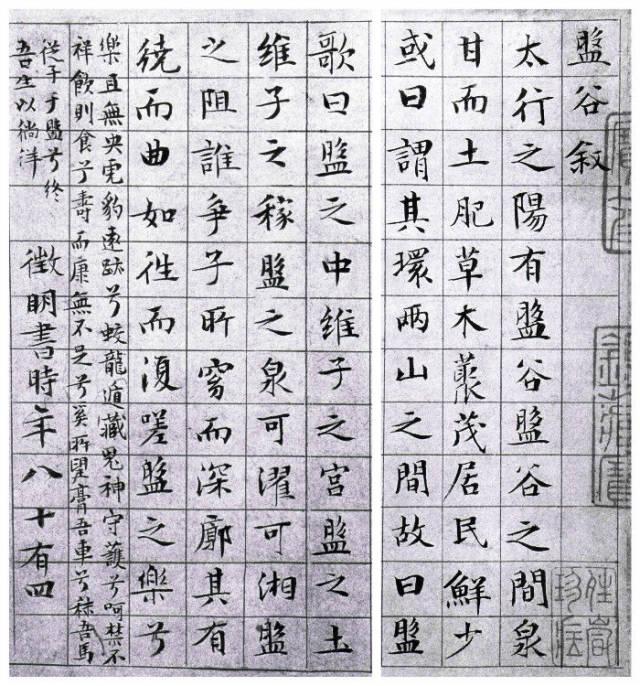 盤谷叙
太行之陽有盤谷盤谷之間泉
甘而土肥草木藂茂居民鮮少
或曰謂其環兩山之間故曰盤
歌曰盤之中維子之宮盤之土
維子之稼盤之泉可濯可湘盤
之阻誰爭子所窈而深廓其有
繞而曲如徃而復嗟盤之樂兮
樂且無央虎豹遠跡兮蛟龍遁藏鬼神守護兮呵禁不
祥飲則食兮壽而康無不足兮奚所望膏吾車兮秣吾馬
從子于盤兮終
吾生以徜徉
徵明書時年八十有四